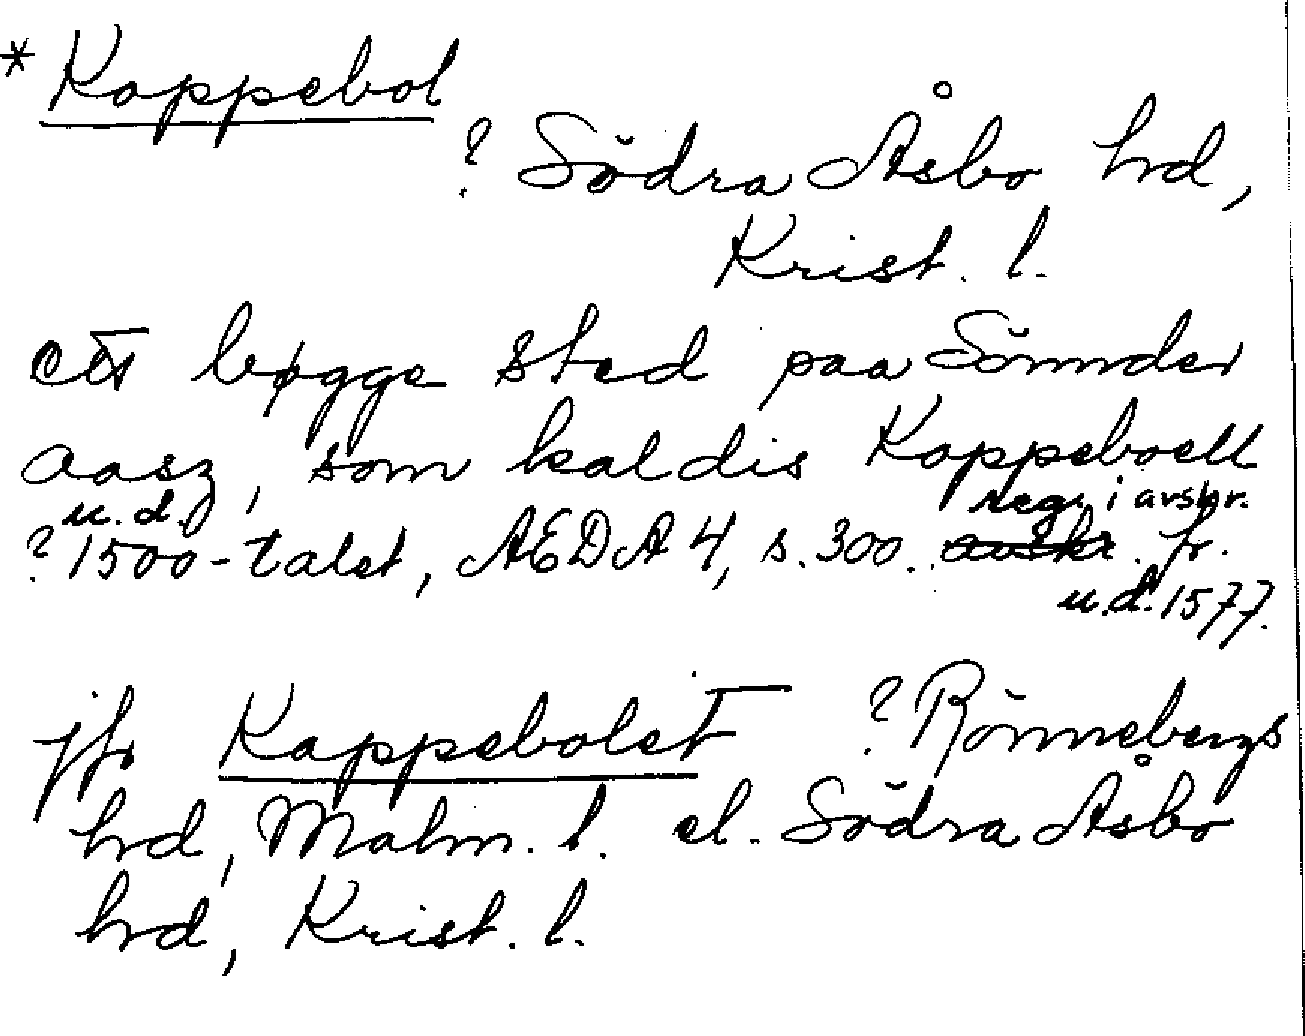 * Koppebol
? Södra Åsbo hd,
Krist. l.
ett bøgge sted paa Sönnder
aasz, som kaldis Koppeboell
u.d. regr i avskr.
? 1500-talet, AEDA 4, s. 300. avskr. fr.
u.d. 1577.
jfr Kappebolet ? Rönnebergs
hd, Malm. l. el. Södra Åsbo
hd, Krist. l.